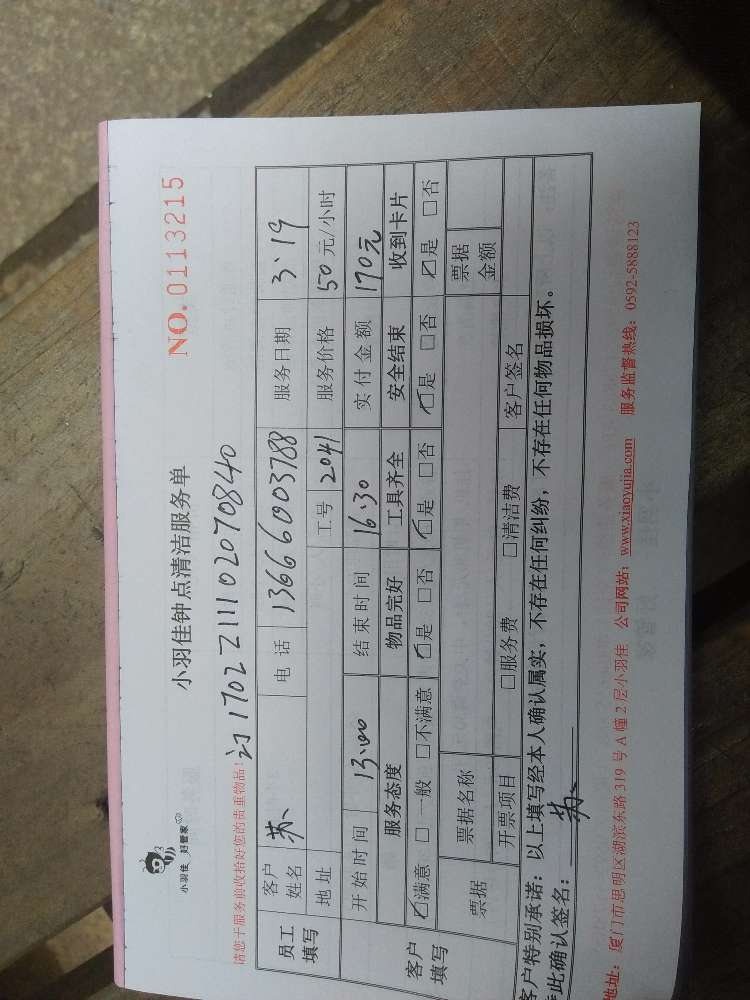 小羽佳 好管家
小羽佳钟点清洁服务单
NO. 0113215
请您于服务前收拾好您的贵重物品!
订1702211102070840
员工填写 客户姓名 苏 电话 13666003788 服务日期 3、19
地址 工号 2041 服务价格 50元/小时
开始时间 13:00 结束时间 16:30 实付金额 170元
客户填写 服务态度 物品完好 工具齐全 安全结束 收到卡片
☑满意 □一般 □不满意 ☑是 □否 ☑是 □否 ☑是 □否 ☑是 □否
票据 票据名称 票据金额
开票项目 □服务费 □清洁费 客户签名
客户特别承诺:以上填写经本人确认属实,不存在任何纠纷,不存在任何物品损坏。
特此确认签名: 苏
地址:厦门市思明区湖滨东路319号A幢2层小羽佳 公司网站:www.xiaoyujia.com 服务监督热线:0592-5888123